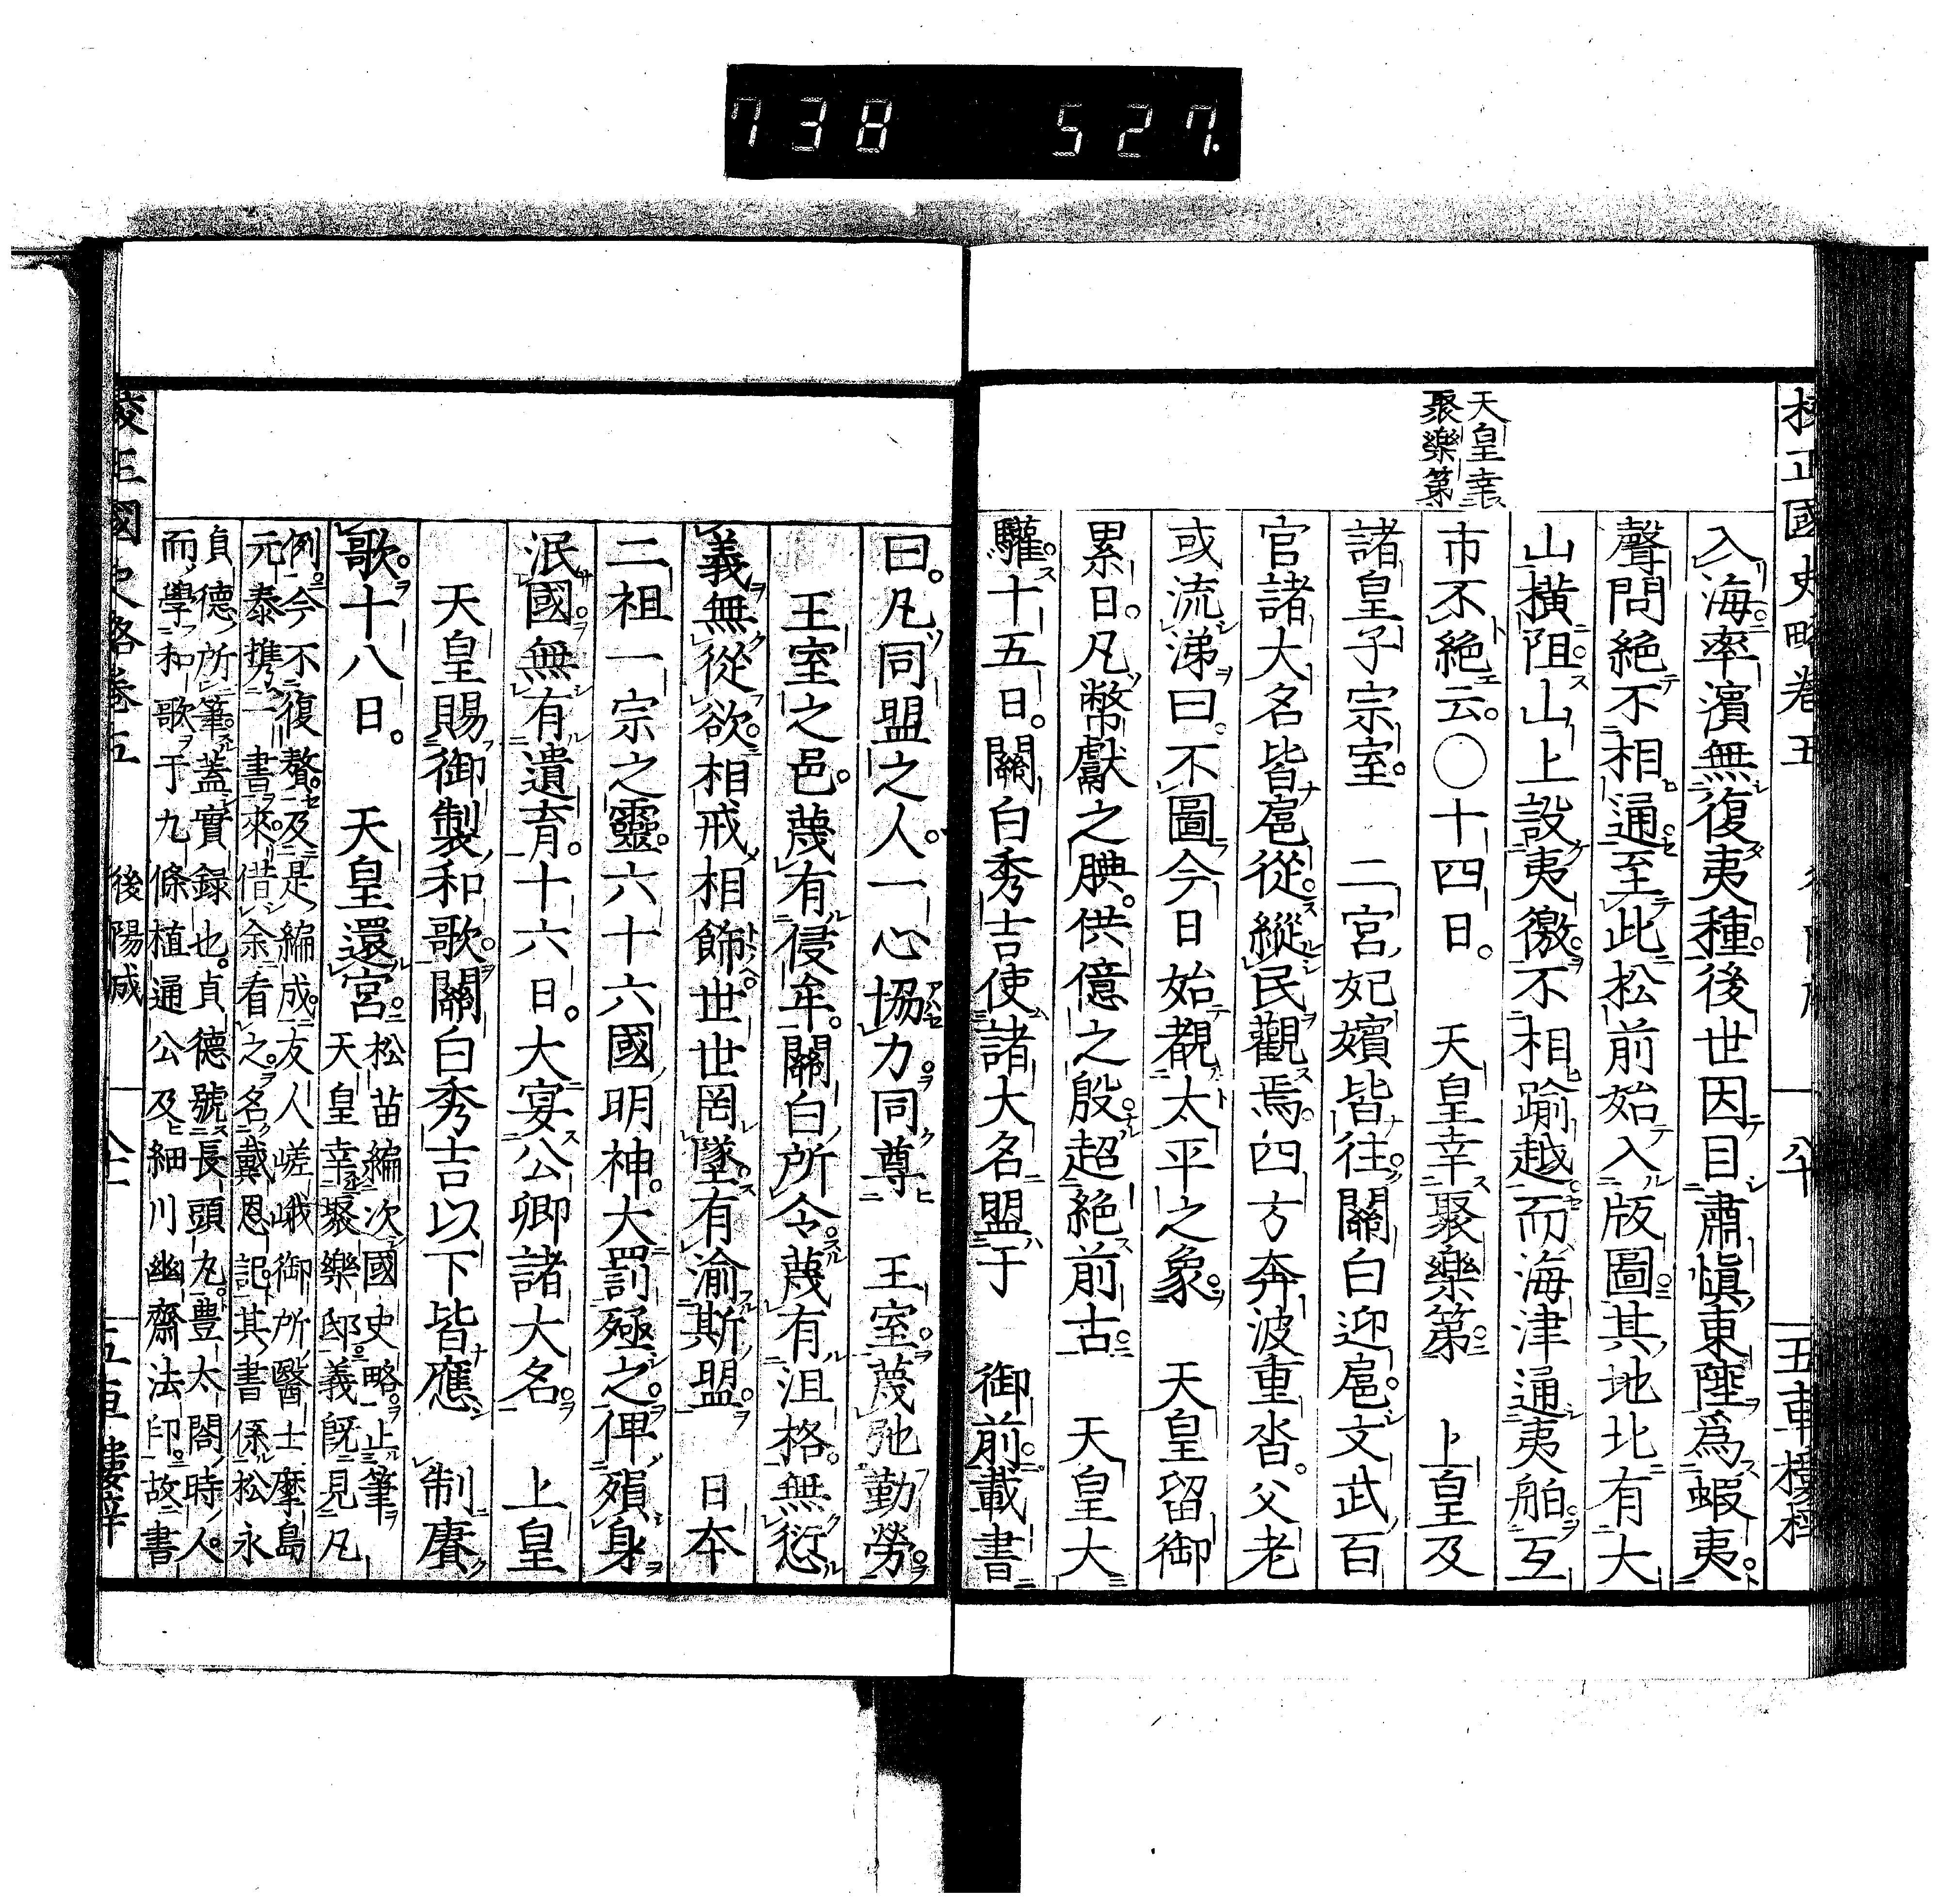 738 527.
校正國史略卷五 八十 五車樓梓
天皇幸
聚樂第
入海率濱無復夷種後世因目肅愼東陲爲蝦夷
聲問絶不相通至此松前始入版圖其地北有大
山橫阻山上設夷徼不相踰越而海津通夷舶互
市不絶云○十四日天皇幸聚樂第上皇及
諸皇子宗室二宮妃嬪皆往關白迎扈文武百
官諸大名皆扈從縱民觀焉四方奔波重沓父老
或流涕曰不圖今日始覩太平之象天皇留御
累日凡幣獻之腆供億之殷超絶前古天皇大
驩十五日關白秀吉使諸大名盟于御前載書
曰凡同盟之人一心協力同尊王室蔑弛勤勞
王室之邑蔑有侵牟關白所令蔑有沮格無愆
義無從欲相戒相飾世世罔墜有渝斯盟日本
二祖一宗之靈六十六國明神大罰殛之俾殞身
泯國無有遺育十六日大宴公卿諸大名上皇
天皇賜御製和歌關白秀吉以下皆應制賡
歌十八日天皇還宮
松苗編次國史略止筆
天皇幸聚樂邸義既見凡
例今不復贅及是編成友人嵯峨御所醫士摩島
元泰携一書來借余看之名戴恩記其書係松永
貞德所筆蓋實録也貞德號長頭丸豊太閤時人
而學和歌于九條植通公及細川幽齋法印故書
校正國史略卷五 後陽成 八十一 五車樓梓